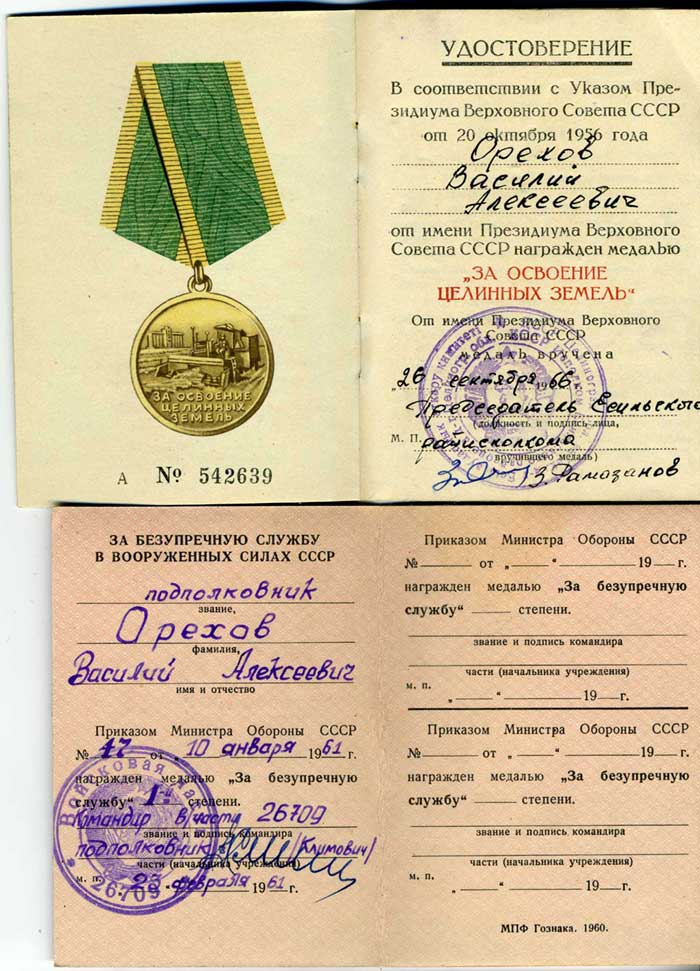 ЗА ОСВОЕНИЕ
ЦЕЛИННЫХ
ЗЕМЕЛЬ
А № 542639
УДОСТОВЕРЕНИЕ
В соответствии с Указом Пре-
зидиума Верховного Совета СССР
от 20 октября 1956 года
Орехов
Василий
Алексеевич
от имени Президиума Верховного
Совета СССР награжден медалью
„ЗА ОСВОЕНИЕ
ЦЕЛИННЫХ ЗЕМЕЛЬ“
От имени Президиума Верховного
Совета СССР
медаль вручена
„26 сентября 1966
Председатель Есильского
(должность и подпись лица,
М. П. райисполкома
вручившего медаль)
З Рамазанов
ЗА БЕЗУПРЕЧНУЮ СЛУЖБУ
В ВООРУЖЕННЫХ СИЛАХ СССР
подполковник
звание,
Орехов
фамилия,
Василий Алексеевич
имя и отчество
Приказом Министра Обороны СССР
№ 47 от „10 января 1961 г.
награжден медалью „За безупречную
службу“ 1й степени.
Командир в/части 26709
звание и подпись командира
подполковник (Климович)
части (начальника учреждения)
м. п. февраля 1961 г.
Войсковая часть
* 26709 *
Приказом Министра Обороны СССР
№ — от „ — “ — 19 — г.
награжден медалью „За безупречную
службу“ — степени.
звание и подпись командира
части (начальника учреждения)
м. п.
„ — “ — 19 — г.
Приказом Министра Обороны СССР
№ — от „ — “ — 19 — г.
награжден медалью „За безупречную
службу“ — степени.
звание и подпись командира
части (начальника учреждения)
м. п.
„ — “ — 19 — г.
МПФ Гознака. 1960.